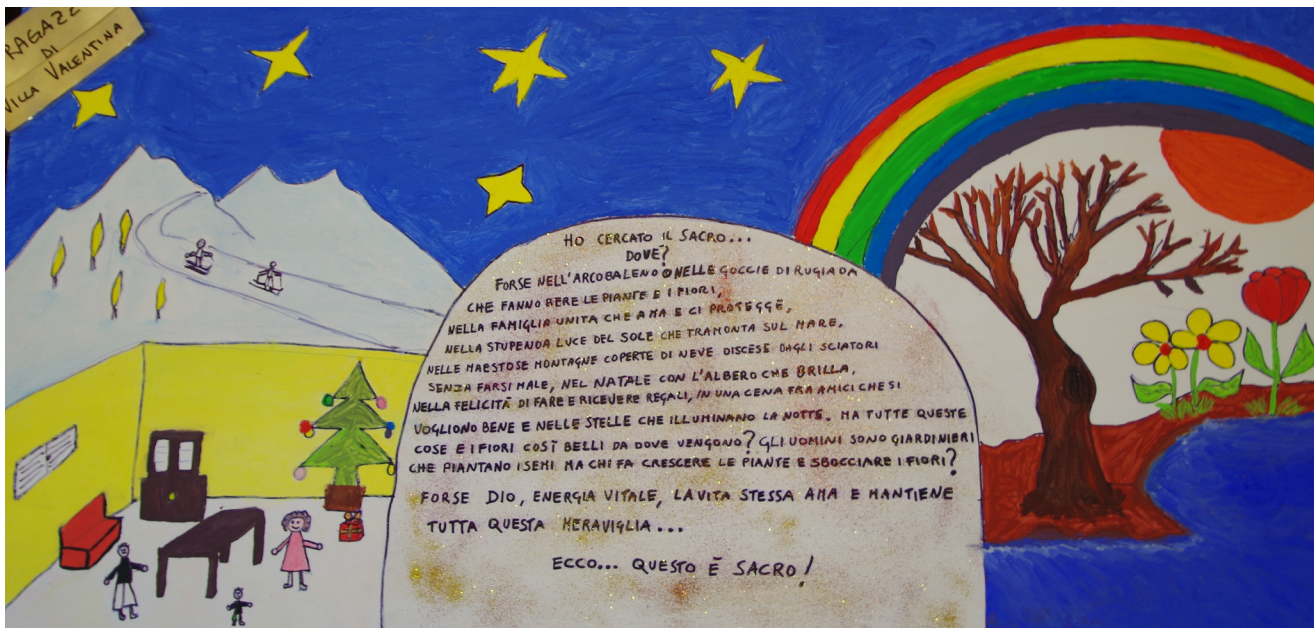 RAGAZZ
DI
VILLA VALENTINA
HO CERCATO IL SACRO...
DOVE?
FORSE NELL'ARCOBALENO O NELLE GOCCIE DI RUGIADA
CHE FANNO BERE LE PIANTE E I FIORI,
NELLA FAMIGLIA UNITA CHE AMA E CI PROTEGGE,
NELLA STUPENDA LUCE DEL SOLE CHE TRAMONTA SUL MARE,
NELLE MAESTOSE MONTAGNE COPERTE DI NEVE DISCESE DAGLI SCIATORI
SENZA FARSI MALE, NEL NATALE CON L'ALBERO CHE BRILLA,
NELLA FELICITÀ DI FARE E RICEVERE REGALI, IN UNA CENA FRA AMICI CHE SI
VOGLIONO BENE E NELLE STELLE CHE ILLUMINANO LA NOTTE. MA TUTTE QUESTE
COSE E I FIORI COSÌ BELLI DA DOVE VENGONO? GLI UOMINI SONO GIARDINIERI
CHE PIANTANO I SEMI MA CHI FA CRESCERE LE PIANTE E SBOCCIARE I FIORI?
FORSE DIO, ENERGIA VITALE, LA VITA STESSA AMA E MANTIENE
TUTTA QUESTA MERAVIGLIA...
ECCO... QUESTO È SACRO!